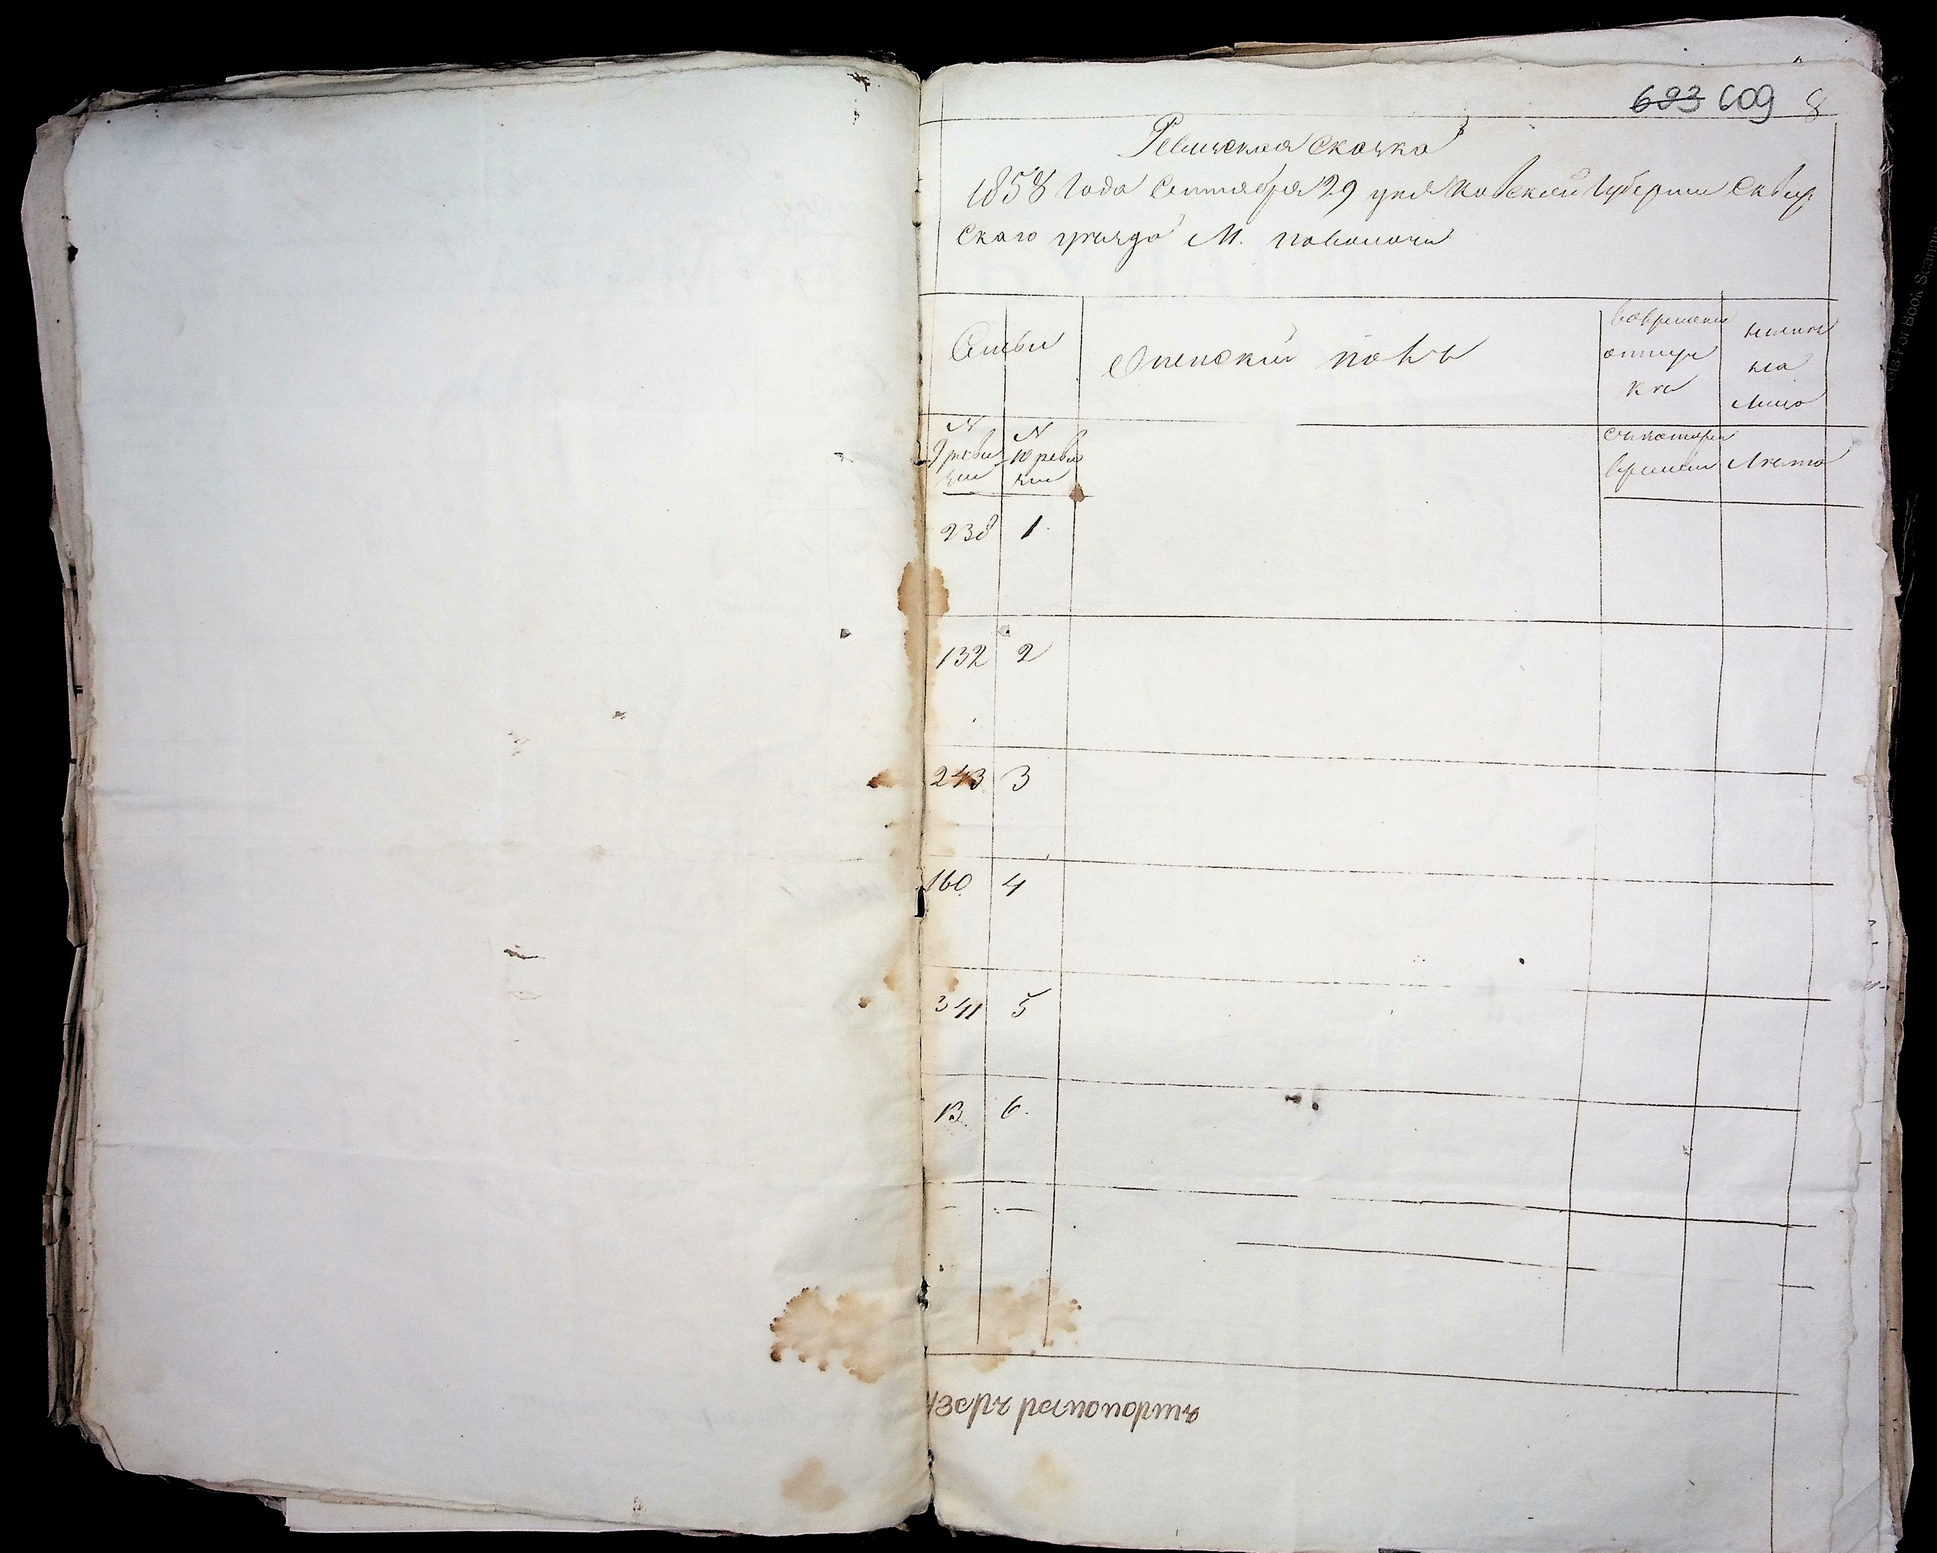 693 609 8
Ревизская Сказка
1858 Года Сентября 29 дня Киевской Губернии Сквир
скаго уезда М. Паволочи
Семьи
Женский полъ
вовременной
отлуч
ке
ныне
на
Лицо
№
9 реви
зии
№
10 реви
зии
съ котораго
времени
Лета
238 1
132 2
243 3
160 4
341 5
13 6
Азеръ рапопортъ